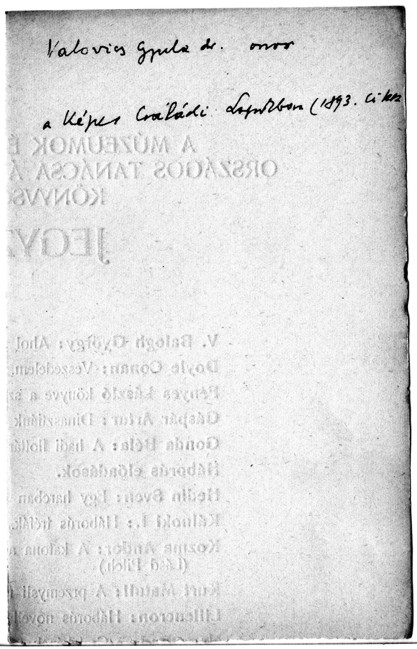 Valovics Gyula dr. orvos
a Képes Családi Lapokban (1893. évi
A MÚZEUMOK É
ORSZÁGOS TANÁCSA Á
KÖNYVS
JEGYZ
V. Balogh György: Ahol
Doyle Conan: Veszedelem
Fényes László könyve a sz
Gáspár Artur: Dinasztiánk
Gonda Béla: A hadi flottá
Háborús előadások.
Hedin Sven: Egy harcban
Kálnoki I.: Háborús tréfák
Kozma Andor: A katona
Kurt Matull: A przemysli
Liliencron: Háborús novell